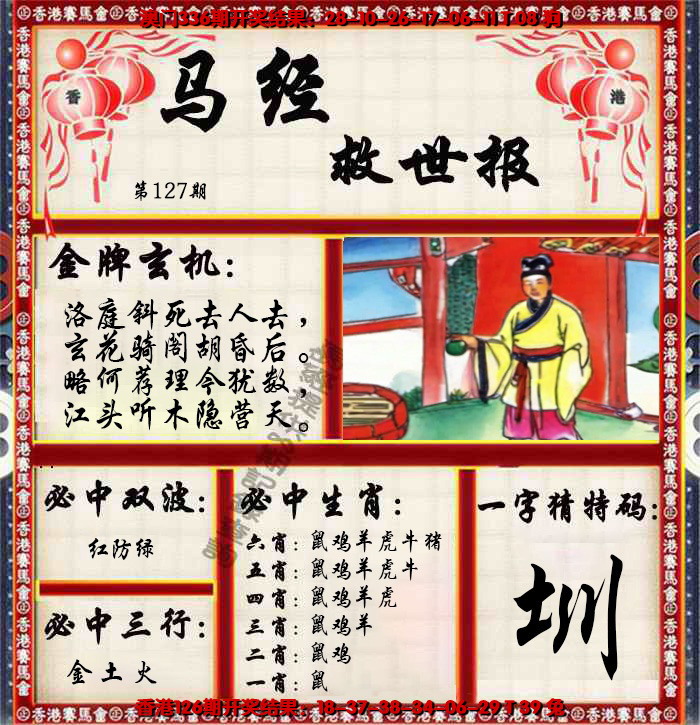 澳门336期开奖结果：28-10-26-17-06-11T08狗
香 港
马经
救世报
第127期
金牌玄机：
洛庭斜死去人去，
玄花骑阁胡昏后。
略何荐理今犹数，
江头听木隐营天。
必中双波：
红防绿
必中三行：
金土火
必中生肖：
六肖：鼠鸡羊虎牛猪
五肖：鼠鸡羊虎牛
四肖：鼠鸡羊虎
三肖：鼠鸡羊
二肖：鼠鸡
一肖：鼠
一字猜特码：
圳
香港126期开奖结果：18-37-38-34-06-29T39兔
香港賽馬會